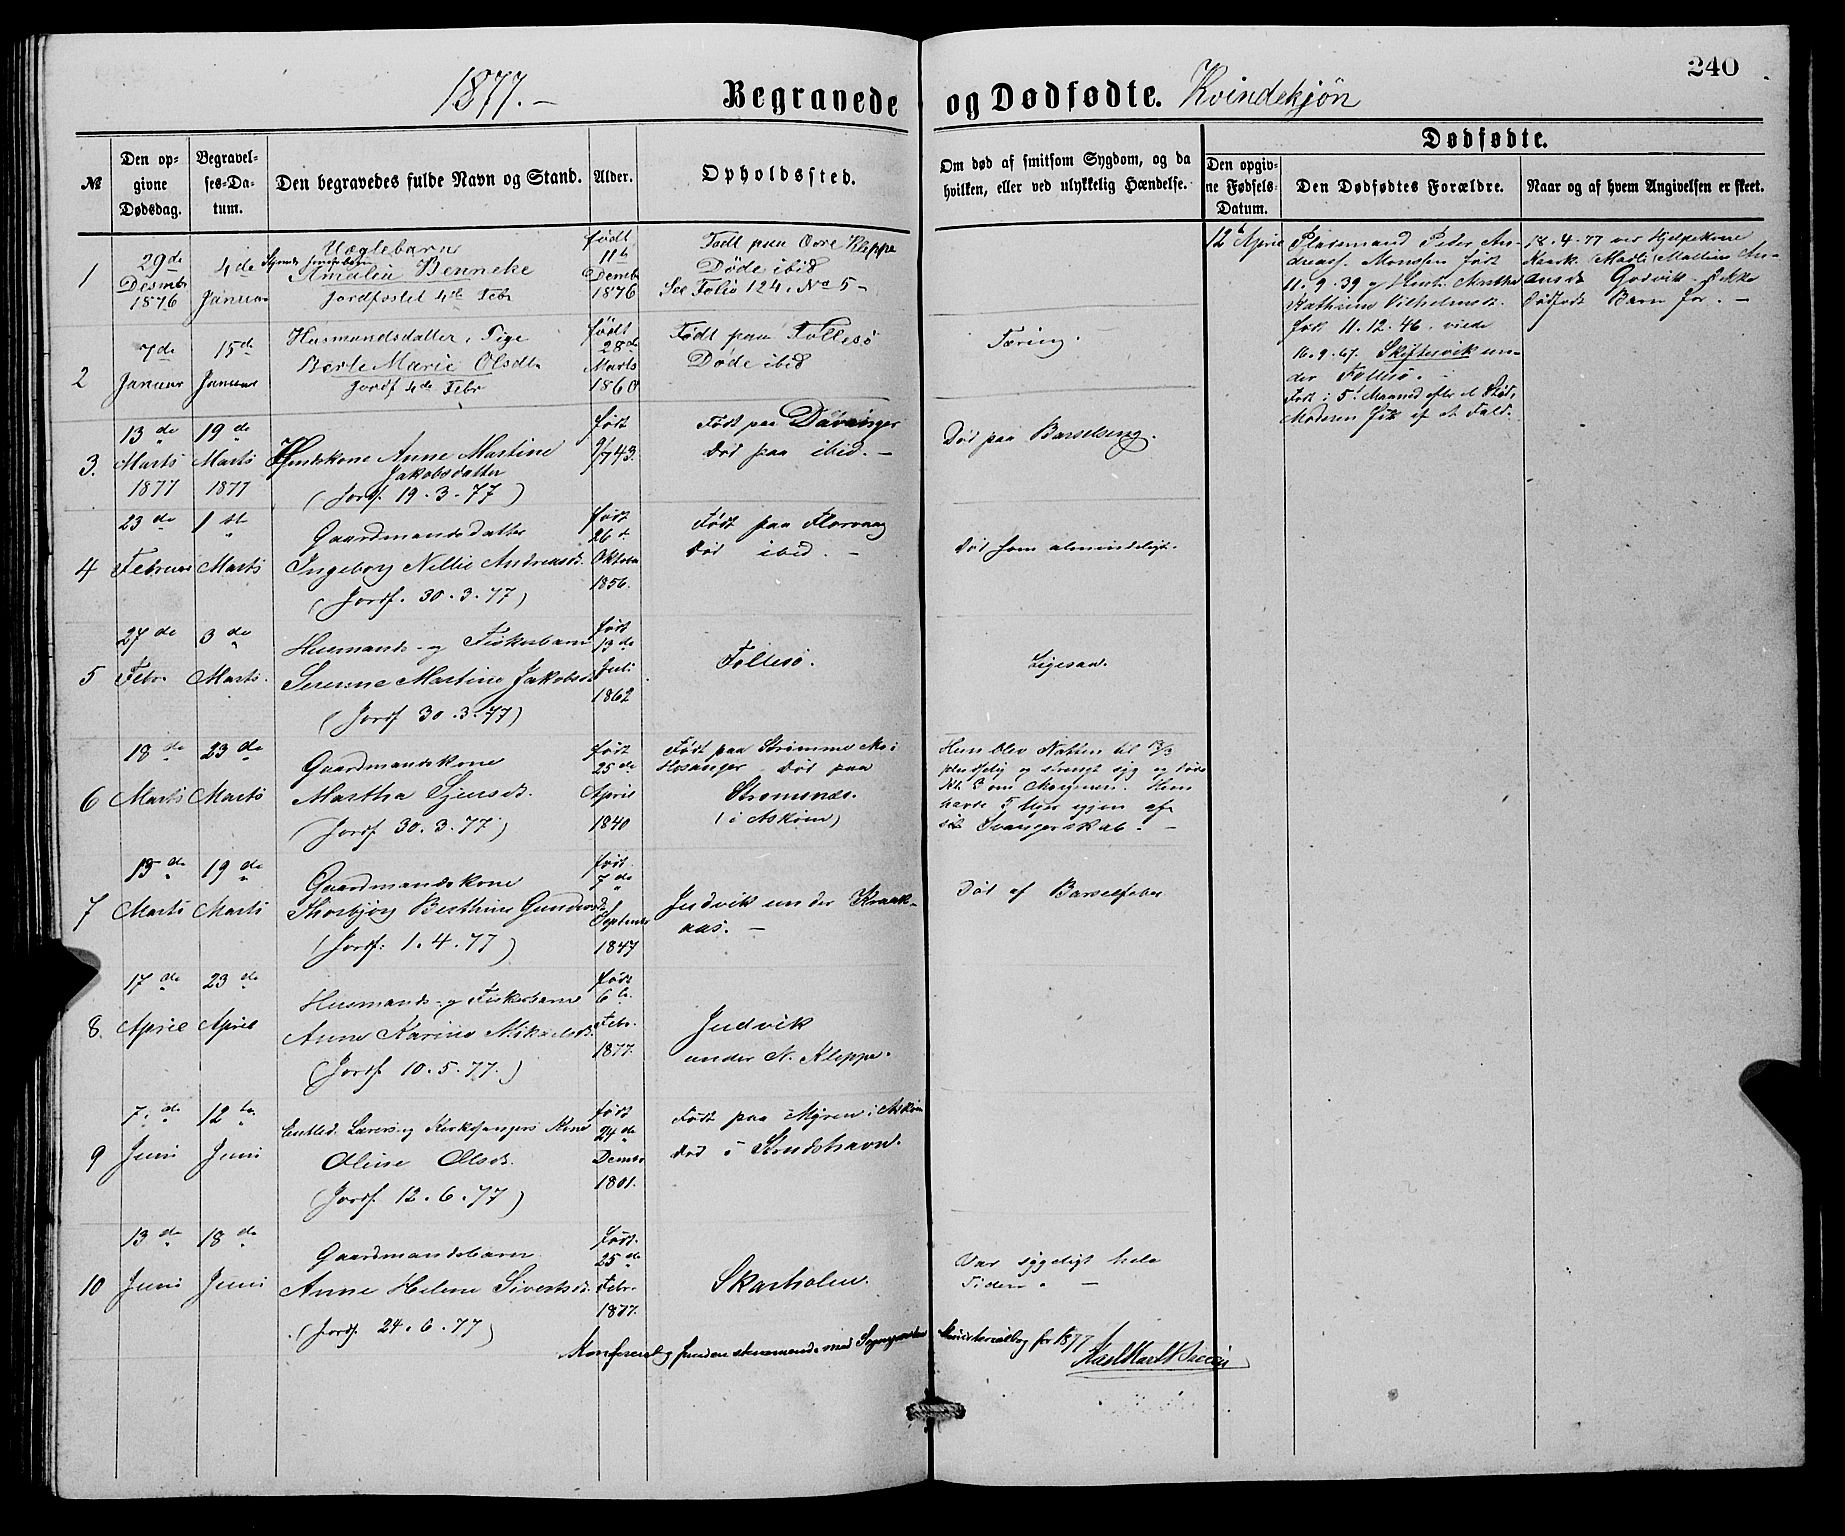 240
1877.–
Begravede og Dødfødte. Kvindekjøn
№
Den opgivne Dødsdag.
Begravelses-Datum.
Den begravedes fulde Navn og Stand.
Alder.
Opholdssted.
Om død af smitsom Sygdom, og da hvilken, eller ved ulykkelig Hændelse.
Dødfødte.
Den opgivne Fødsels-Datum.
Den Dødfødtes Forældre.
Naar og af hvem Angivelsen er skeet.
1
29de
Desmbr
1876
4de
Januar
Uægtebarn
Amalia Benneke
Jordfæstet 4de Febr
født
11te
Dembr
1876
Født paa Øvre Kleppe
Døde ibid
See Folio 124, No 5–
2
7de
Januar
15de
Januar
Husmandsdatter, Pige
Berte Marie Olsdtr
Jordf 4de Febr
født
28de
Marts
1860
Født paa Follesø
Døde ibid
Tæring.
3.
13de
Marts
1877
19de
Marts
1877
Anne Martine
Jakobsdatter
(Jordf. 19.3.77)
født
9/7 43.
Født paa Davanger
Død paa ibid. –
Død paa Barselseng.
4
23de
Februar
1ste
Marts
Gaardmandsdatter
Ingeborg Nellie Andreasd.
(Jordf. 30.3.77)
født
26de
Oktober
1856.
Født paa Florvaag
Død ibid. –
Død som almindeligt.
5
27de
Febr.
3de
Marts.
Husmands- og Fiskerbarn
Serine Martine Jakobsd.
(Jordf 30.3.77)
født
13de
Juli
1862
Follesø.
Ligesaa.
6
18de
Marts
23de
Marts
Gaardmandskone
Martha
(Jordf. 30.3.77)
født
25de
April
1840
Født paa Strømme
Hosanger. Død paa
Stromsnæs.
(i Askøen)
Hun blev Natten til
pludselig og strengt syg og døde
om Morgenen. Hun
havde
Svangerskab. –
7
15de
Marts
19de
Marts
Gaardmandskone
Thorbjør Berthine
(Jordf: 1.4.77)
født.
7de
September
1847
Judvik under Kraakaas. –
Død af Barselfeber
8.
17de
April
23de
April
Husmands- og Fiskerbarn
Anne Karine
(Jordf 10.5.77.)
født
6te
Febr.
1877.
Judvik
under N. Kleppe.
9
7de
Juni
12te
Juni
Entled. Lærers og Kirkesangers Kone
Oline Olsd.
(Jordf. 12.6.77)
født
24de
Dembr
1801.
Født paa Myren i Askøen
død i Strudshavn.
10
13de
Juni
18de
Juni
Gaardmandsbarn
Anne Helene Sivertsd.
(Jordf. 24.6.77)
Født.
25de
Febr.
1877.
Skarholen.
Var sygeligt hele
Tiden. –
12te April
Pladsmand Peder Andreas Monsen født
11.9.39 og Hustr. Martha
Kathrine Vilhelmsd.
født 11.12.46. viede
16.9.67. Skiftesvik under Follesø.
Født i 5te Maaned efter et Stød,
Moderen fik af et Fald.
18.4.77 ved Hjelpekone
Godvik. Ikke
dødfødt Barn før. –
Konfereret og funden stemmende med Sognepræstens Ministerialbog for 1877